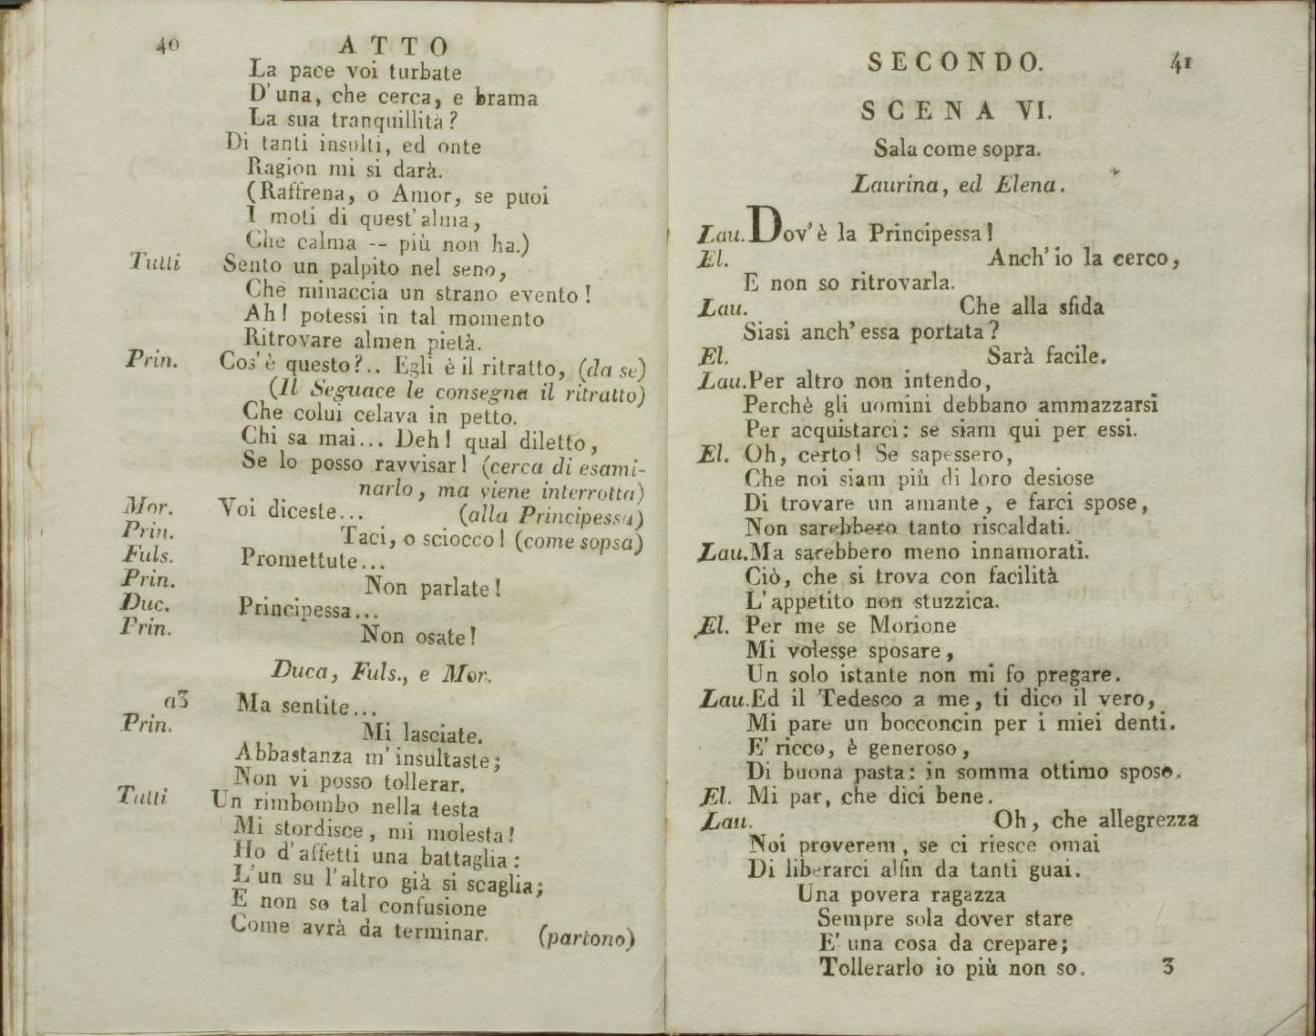 40 ATTO
La pace voi turbate
D'una, che cerca, e brama
La sua tranquillità?
Di tanti insulti, ed onte
Ragion mi si darà.
(Raffrena, o Amor, se puoi
I moti di quest'alma,
Che calma -- più non ha.)
Tutti Sento un palpito nel seno,
Che minaccia un strano evento!
Ah! potessi in tal momento
Ritrovare almen pietà.
Prin. Cos'è questo?.. Egli è il ritratto, (da se)
(Il Seguace le consegna il ritratto)
Che colui celava in petto.
Chi sa mai... Deh! qual diletto,
Se lo posso ravvisar! (cerca di esami-
narlo, ma viene interrotta)
Mor. Voi diceste... (alla Principessa)
Prin. Taci, o sciocco! (come sopsa)
Fuls. Promettute...
Prin. Non parlate!
Duc. Principessa...
Prin. Non osate!
Duca, Fuls., e Mor.
a3 Ma sentite...
Prin. Mi lasciate.
Abbastanza m'insultaste;
Non vi posso tollerar.
Tutti Un rimbombo nella testa
Mi stordisce, mi molesta!
Ho d'affetti una battaglia:
L'un su l'altro già si scaglia;
E non so tal confusione
Come avrà da terminar. (partono)
SECONDO. 41
SCENA VI.
Sala come sopra.
Laurina, ed Elena.
Lau. Dov'è la Principessa!
El. Anch'io la cerco,
E non so ritrovarla.
Lau. Che alla sfida
Siasi anch'essa portata?
El. Sarà facile.
Lau. Per altro non intendo,
Perchè gli uomini debbano ammazzarsi
Per acquistarci: se siam qui per essi.
El. Oh, certo! Se sapessero,
Che noi siam più di loro desiose
Di trovare un amante, e farci spose,
Non sarebbero tanto riscaldati.
Lau. Ma sarebbero meno innamorati.
Ciò, che si trova con facilità
L'appetito non stuzzica.
El. Per me se Morione
Mi volesse sposare,
Un solo istante non mi fo pregare.
Lau. Ed il Tedesco a me, ti dico il vero,
Mi pare un bocconcin per i miei denti.
E' ricco, è generoso,
Di buona pasta: in somma ottimo sposo.
El. Mi par, che dici bene.
Lau. Oh, che allegrezza
Noi proverem, se ci riesce omai
Di liberarci alfin da tanti guai.
Una povera ragazza
Sempre sola dover stare
E' una cosa da crepare;
Tollerarlo io più non so. 3